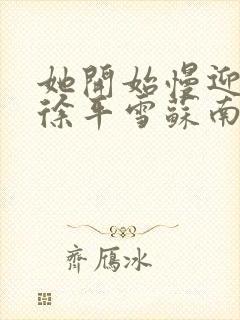 她開始慢迎
徐平雪蘇南
齊鴈冰